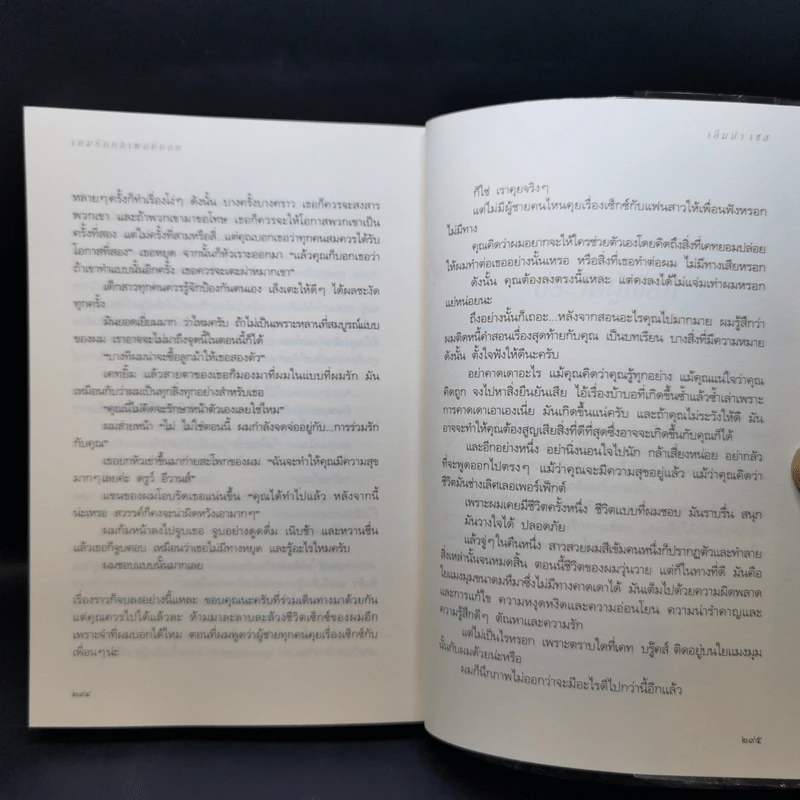 หลายๆครั้งก็ทำเรื่องโง่ๆ ดังนั้น บางครั้งบางคราว เธอก็ควรจะสงสาร
พวกเขา และถ้าพวกเขามาขอโทษ เธอก็ควรจะให้โอกาสพวกเขาเป็น
ครั้งที่สอง แต่ไม่ครั้งที่สามหรือสี่...แต่คุณบอกเธอว่าทุกคนสมควรได้รับ
โอกาสที่สอง” เธอหยุด จากนั้นก็หัวเราะออกมา “แล้วคุณก็บอกเธอว่า
ถ้าเขาทำแบบนั้นอีกครั้ง เธอควรจะเตะผ่าหมากเขา”
เด็กสาวทุกคนควรรู้จักป้องกันตนเอง เล็งเตะให้ดีๆ ได้ผลชะงัด
ทุกครั้ง
มันยอดเยี่ยมมาก ว่าไหมครับ ถ้าไม่เป็นเพราะหลานที่สมบูรณ์แบบ
ของผม เราอาจจะไม่มาถึงจุดนี้ในตอนนี้ก็ได้
“บางทีผมน่าจะซื้อลูกม้าให้เธอสองตัว”
เคทยิ้ม แล้วสายตาของเธอก็มองมาที่ผมในแบบที่ผมรัก มัน
เหมือนกับว่าผมเป็นทุกสิ่งทุกอย่างสำหรับเธอ
“คุณนี่ไม่คิดจะรักษาหน้าตัวเองเลยใช่ไหม”
ผมส่ายหน้า “ไม่ ไม่ใช่ตอนนี้ ผมกำลังจดจ่ออยู่กับ...การร่วมรัก
กับคุณ”
เธอยกหัวเข่าขึ้นมาก่ายสะโพกของผม “ฉันจะทำให้คุณมีความสุข
มากๆเลยค่ะ ดรูว์ อีวานส์”
แขนของผมโอบรัดเธอแน่นขึ้น “คุณได้ทำไปแล้ว หลังจากนี้
น่ะเหรอ สวรรค์ก็คงจะน่าผิดหวังเอามากๆ”
ผมก้มหน้าลงไปจูบเธอ จูบอย่างดูดดื่ม เนิบช้า และหวานชื่น
แล้วเธอก็จูบตอบ เหมือนว่าเธอไม่มีทางหยุด และรู้อะไรไหมครับ
ผมชอบแบบนั้นมากเลย
เรื่องราวก็จบลงอย่างนี้แหละ ขอบคุณนะครับที่ร่วมเดินทางมาด้วยกัน
แต่คุณควรไปได้แล้วละ ห้ามมาละลาบละล้วงชีวิตเซ็กซ์ของผมอีก
เพราะจำที่ผมบอกได้ไหม ตอนที่ผมพูดว่าผู้ชายทุกคนคุยเรื่องเซ็กซ์กับ
เพื่อนๆน่ะ
๒๙๔
เอ็มม่า เชส
ก็ใช่ เราคุยจริงๆ
แต่ไม่มีผู้ชายคนไหนคุยเรื่องเซ็กซ์กับแฟนสาวให้เพื่อนฟังหรอก
ไม่มีทาง
คุณคิดว่าผมอยากจะให้ใครช่วยตัวเองโดยคิดถึงสิ่งที่เคทยอมปล่อย
ให้ผมทำต่อเธออย่างนั้นเหรอ หรือสิ่งที่เธอทำต่อผม ไม่มีทางเสียหรอก
ดังนั้น คุณต้องลงตรงนี้แหละ แต่คงลงได้ไม่แจ่มเท่าผมหรอก
แย่หน่อยนะ
ถึงอย่างนั้นก็เถอะ...หลังจากสอนอะไรคุณไปมากมาย ผมรู้สึกว่า
ผมติดหนี้คำสอนเรื่องสุดท้ายกับคุณ เป็นบทเรียน บางสิ่งที่มีความหมาย
ดังนั้น ตั้งใจฟังให้ดีนะครับ
อย่าคาดเดาอะไร แม้คุณคิดว่าคุณรู้ทุกอย่าง แม้คุณแน่ใจว่าคุณ
คิดถูก จงไปหาสิ่งยืนยันเสีย ไอ้เรื่องบ้าบอที่เกิดขึ้นซ้ำแล้วซ้ำเล่าเพราะ
การคาดเดาเอาเองเนี่ย มันเกิดขึ้นแน่ครับ และถ้าคุณไม่ระวังให้ดี มัน
อาจจะทำให้คุณต้องสูญเสียสิ่งที่ดีที่สุดซึ่งอาจจะเกิดขึ้นกับคุณก็ได้
และอีกอย่างหนึ่ง อย่านิ่งนอนใจไปนัก กล้าเสี่ยงหน่อย อย่ากลัว
ที่จะพูดออกไปตรงๆ แม้ว่าคุณจะมีความสุขอยู่แล้ว แม้ว่าคุณคิดว่า
ชีวิตมันช่างเลิศเลอเพอร์เฟ็กต์
เพราะผมเคยมีชีวิตครั้งหนึ่ง ชีวิตแบบที่ผมชอบ มันราบรื่น สนุก
มันวางใจได้ ปลอดภัย
แล้วจู่ๆในคืนหนึ่ง สาวสวยผมสีเข้มคนหนึ่งก็ปรากฏตัวและทำลาย
สิ่งเหล่านั้นจนหมดสิ้น ตอนนี้ชีวิตของผมวุ่นวาย แต่ก็ในทางที่ดี มันคือ
ใยแมงมุมขนาดมหึมาซึ่งไม่มีทางคาดเดาได้ มันเต็มไปด้วยความผิดพลาด
และการแก้ไข ความหงุดหงิดและความอ่อนโยน ความน่ารำคาญและ
ความรู้สึกดีๆ ตัณหาและความรัก
แต่ไม่เป็นไรหรอก เพราะตราบใดที่เคท บรู๊คส์ ติดอยู่บนใยแมงมุม
นั้นกับผมด้วยน่ะหรือ
ผมก็นึกภาพไม่ออกว่าจะมีอะไรดีไปกว่านี้อีกแล้ว
๒๙๕